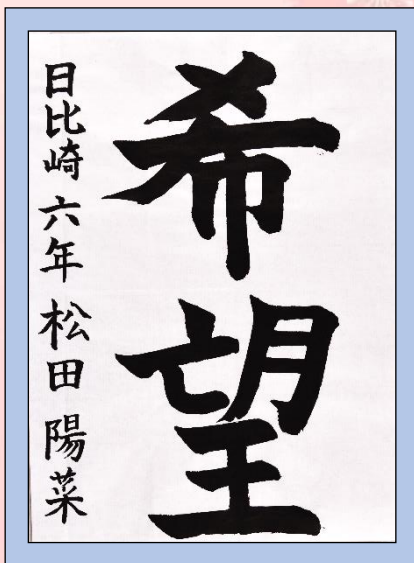 希望
日比崎 六年 松田 陽菜